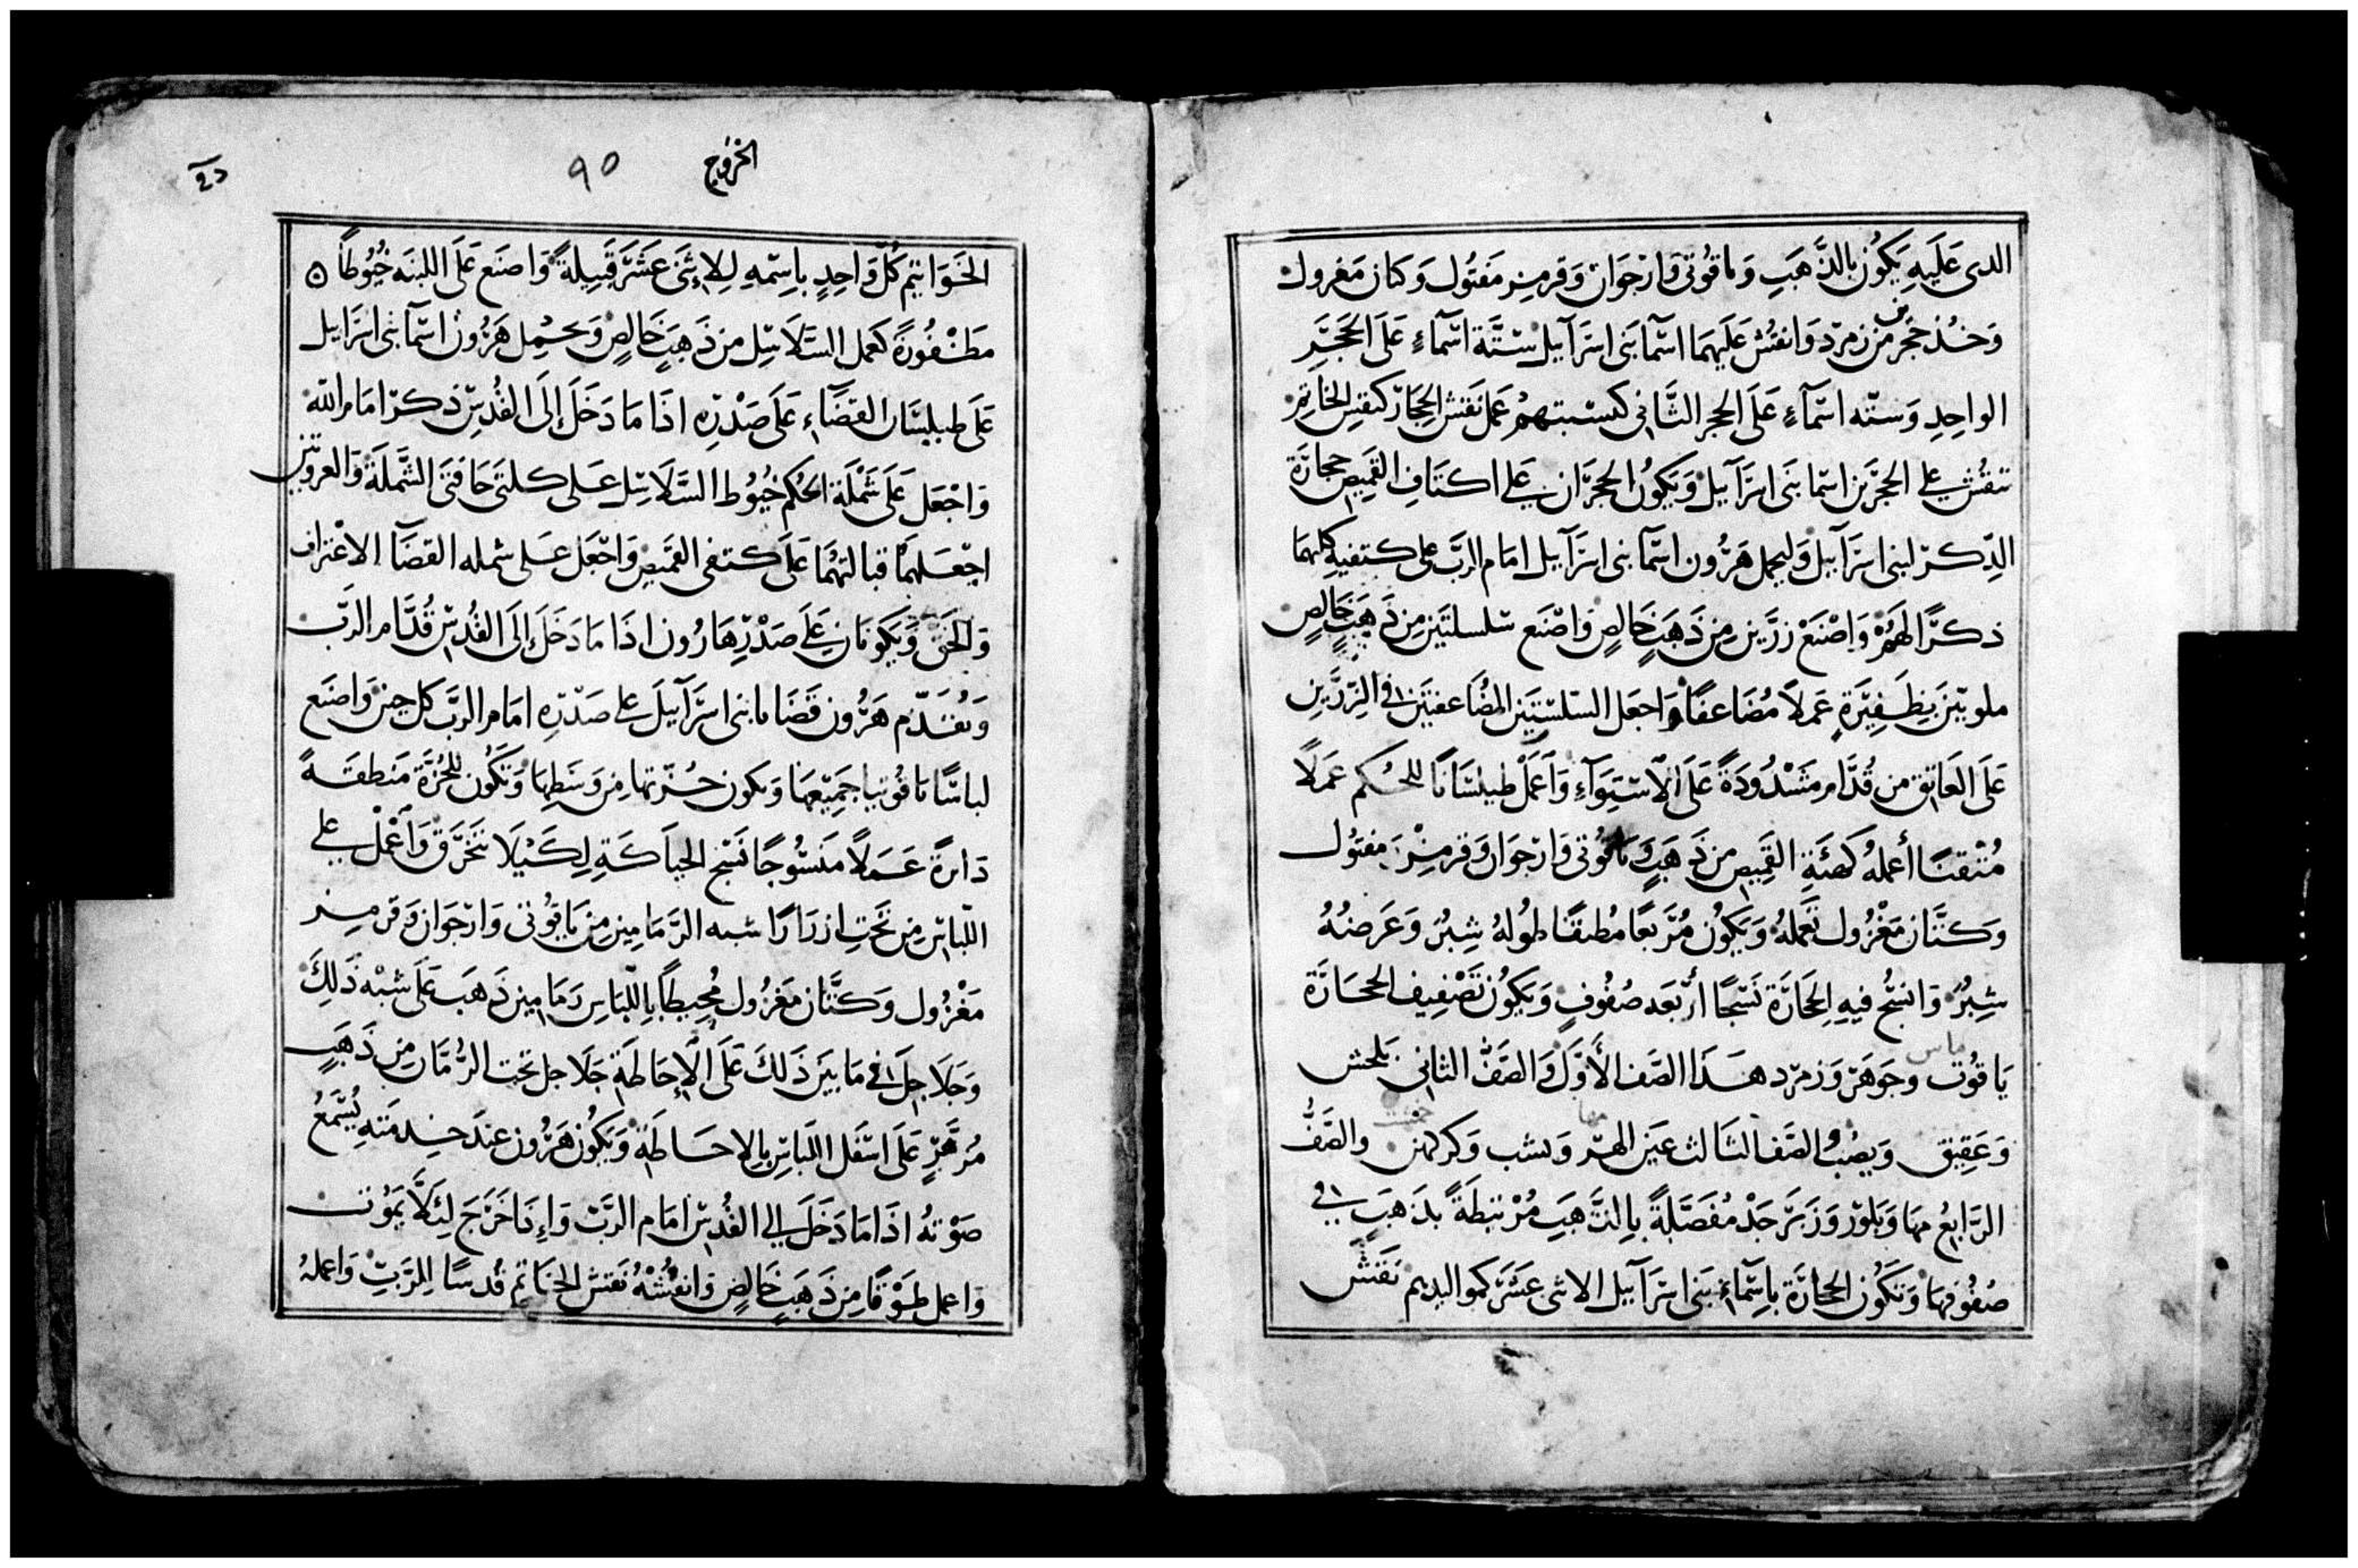 الدى عَلَيهِ يَكُون بالذَّهَبِ وَماقُونى وَارْجَوَان وَقرمِز مَفتُول وَكتان مَغرول
وَخُذ حَجرَ من زمرّد وَانقُش عَلَيهمَا اسْمآ بَنى اسرَآئيل سْتَّة اسْمآءٍ عَلَى الحَجَرِ
الواحِدِ وَستّه اسْمآءٍ عَلَى الحجرِ الثَّانى كنسْبتهمْ عمل نَقش الحِجَارَ كنقش الخَاتِم
تنقُش على الحجَرَين اسْما بَنى اسرَآئيل وَيَكُون الحجَرَان على اكتَافِ القَمِيص حجارَة
الذِّكرْ لبنى اسرَآئيل وَليحمل هَرُون اسْمآ بنى اسرَآئيل امَام الرَبَّ على كتفيهِ كليهمَا
ذكرًا لهَمْ وَاصْنَعْ زرَّين مِن ذَهَبٍ خَالصٍ وَاصْنَع سْلسلتَين مِن ذَهَبٍ خَالِصٍ
ملويتَين بِظَفِيَرة عَمَلًا مُضَاعفًا وَاجعَل السّلسْلتَين المضُاعفتَين فى الزِرَّين
عَلَى العَاتِق من قُدَّام مَشدُودَةً عَلَى الاسْتِوَآءِ وَاعَمَلْ طيلسَانًا للحُكم عَمَلًا
مُتْقنًا أعمَلهُ كَهئَةِ القَمِيصِ من ذَهَبٍ وَماقُونى وَارْجوَان وَقرمِزْ مفتُول
وَكتَّان مَغْزُول تعَملهُ وَيَكوُن مُرَبعًا مُطبقًا طوُلهُ شِبرُ وَعَرضُهُ
شِبرُ وَانسُج فيهِ الحِجَارَة نَسْجًا أرْبَعَه صُفُوفٍ وَيَكوُن تَصْفِيف الححَارَة
يَاقوُت وجَوهَر وَزمرّد هَذَا الصَّف الأَوَّل وَالصَفُّ الثانى بَلخش
ماس
وَعَقِيق وَيصُب الصَف الثالث عَين الهرّ وَيشب وَكركهن والصَفُّ
الرَّابعُ مها وَبَلوّر وَزَبَرَجَدْ مُفَصَّلَةً بِالذَّهَبِ مُرْتبطَةً بذَهَبٍ فى
صُفوُفهَا وَتَكُون الحجَارَة بِاسْمَآءِ بَنى اسرَآئيل الاثنى عَشَر كموَاليدِهِم نَقشَ
الخرُوج
٩٥
الخَوَاتِيم كُلَّ وَاحِدٍ باسِمْهِ لِلاِثنَى عَشَرَ قَبِيلَةً وَاصنَع عَلَى اللبنَه خُيُوطاً
مَظْفُورَةً كَعمل السَّلَاسِل مِن ذَهَبٍ خَالِصٍ وَيحمِل هَرُون اسْمآ بنى اسرَايل
عَلَى طيلسَان القضَآء عَلَى صَدْرِهِ اذَا مَا دَخَلَ إلَى القُدسِ ذكرًا امَام الله
وَاجْعَل عَلَى شَمْلَة الحُكم خيُوط السَّلَاسِل عَلى كلتَى حَافَتى الشَّملَة وَالعروتين
اجْعَلهمَا قبالتهُمَا عَلى كتفى القَمَيص وَاجْعَل عَلى شمله القضَآ الاعْترَاف
وَالحَق وَيَكونَان على صَدْرِ هَارُون اذَا مَا دَخَلَ إلَى القُدسِ قُدَّام الرَبّ
وَيُقدّم هَرُون قَضَايا بنى اسرَآئيلَ على صَدْرِهِ امَام الرَبَّ كل حِين وَاصنَع
لباسًا ماقُونيا جَمِيَعهَا وَيكون حُزّتها مِن وَسَطِهَا وَتَكُون للحُزَّة مَنطقَةً
دَائرةً عَمَلاً مَنسُوجًا نَسْج الحيَاكَةِ لِكَيْلَا تَتَخَرَّقَ وَاعْمْل على
اللّبَاسِ مِن تَحَتِ ازرَارًا شبه الرَّمَامِين مِن مَاقوُنى وَارجَوَان وَقرمِز
مَغْزُول وَكتَّان مَغزُول مُحِيطاً بِاللّبَاسِ رَمَامِين ذَهَب عَلَى شبْه ذَلِكَ
وَجَلَاجلَ فى مَا بَينَ ذَلكَ عَلَى الإحَاطَةِ جَلَاجل تحَت الرُّمَّان مِن ذَهَبٍ
مُزهَّرٍ عَلَى اسْفَل اللّبَاسِ بالاحَاطَةِ وَيَكُون هَرُون عِندَ خِدمَتهِ يُسْمَعُ
صَوْتهُ اذَا مَا دَخَل الى القُدسِ امَام الرَبّ وَاِذَا خَرَجَ لِئلَّا يَمُوت
وَاعمل طَوْقًا مِن ذَهَبٍ خَالصٍ وَانقُشْهُ نَقشَ الخاتِم قُدسًا لِلرَبِّ وَاعملهُ